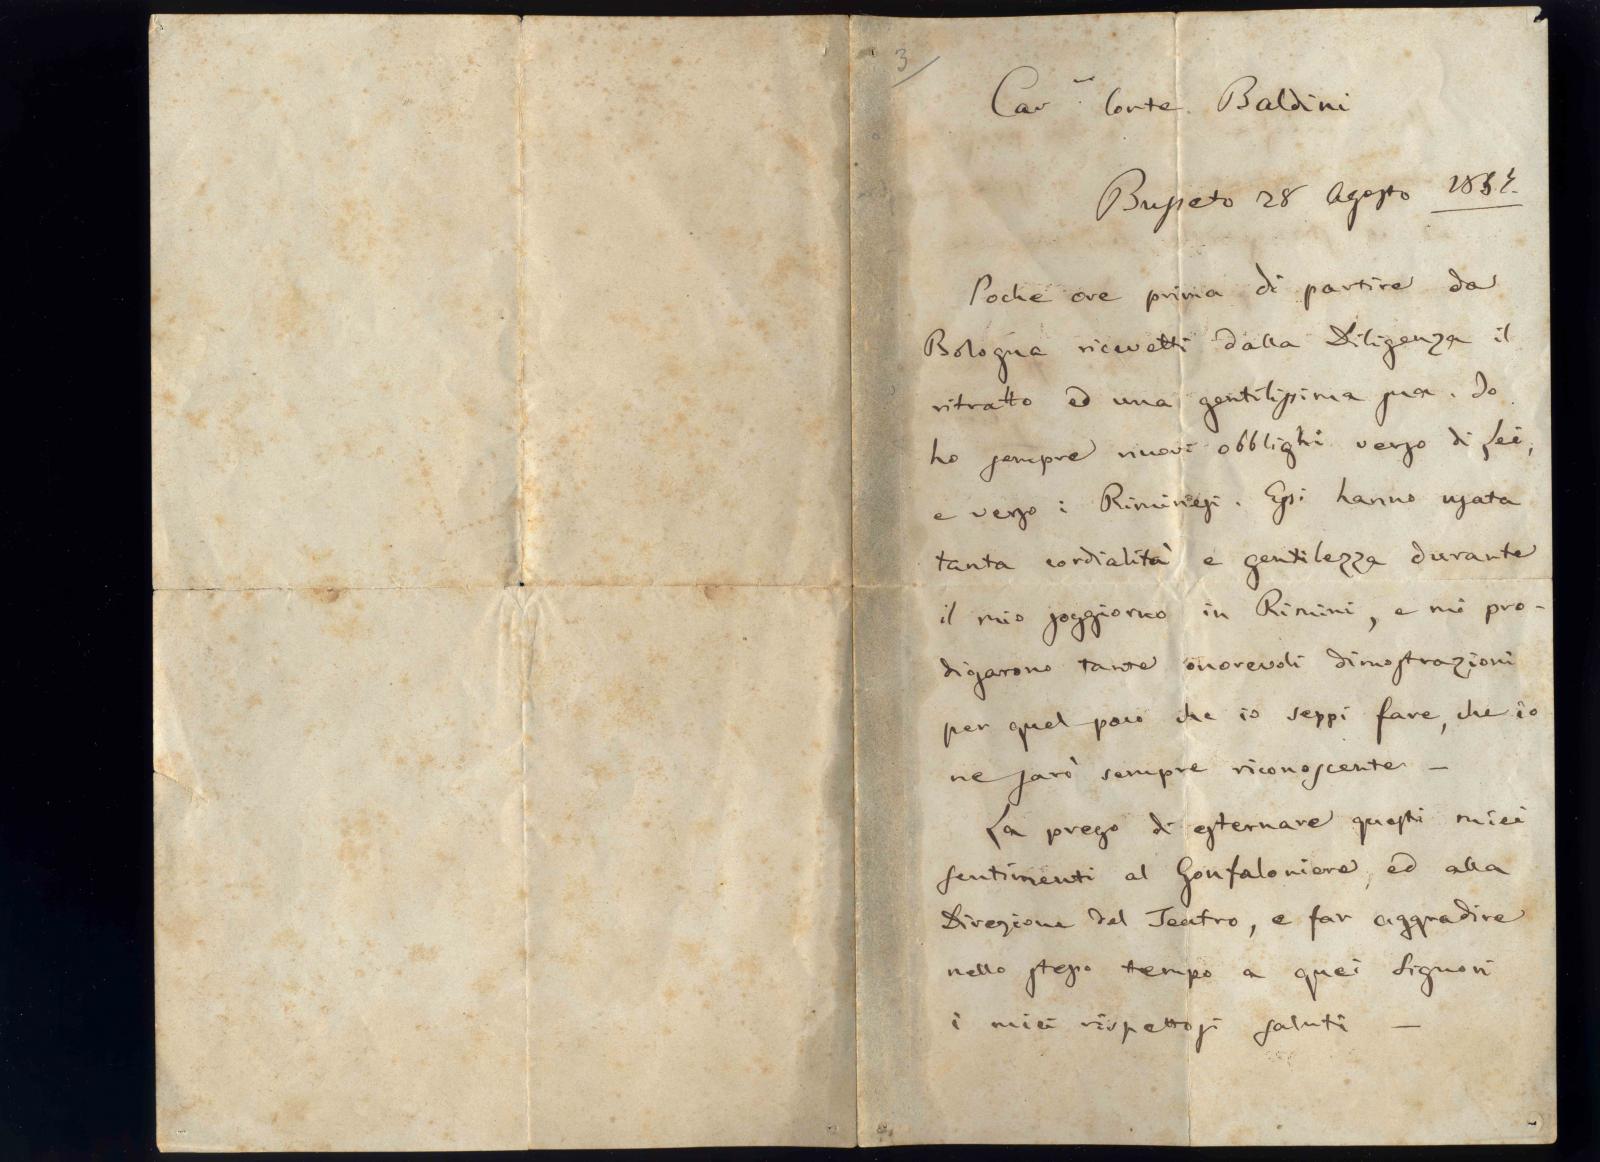 3
Cav.r Conte Baldini
Busseto 28 Agosto
Poche ore prima di partire da
Bologna ricevetti dalla Diligenza il
ritratto ed una gentilissima sua. Io
ho sempre nuovi obblighi verso di Lei,
e verso i Riminesi. Essi hanno usata
tanta cordialità e gentilezza durante
il mio soggiorno in Rimini, e mi pro-
digarono tante onorevoli dimostrazioni
per quel poco che io seppi fare, che io
ne sarò sempre riconoscente –
La prego di esternare questi miei
sentimenti al Gonfaloniere, ed alla
Direzione del Teatro, e far aggradire
nello stesso tempo a quei Signori
i miei rispettosi saluti –